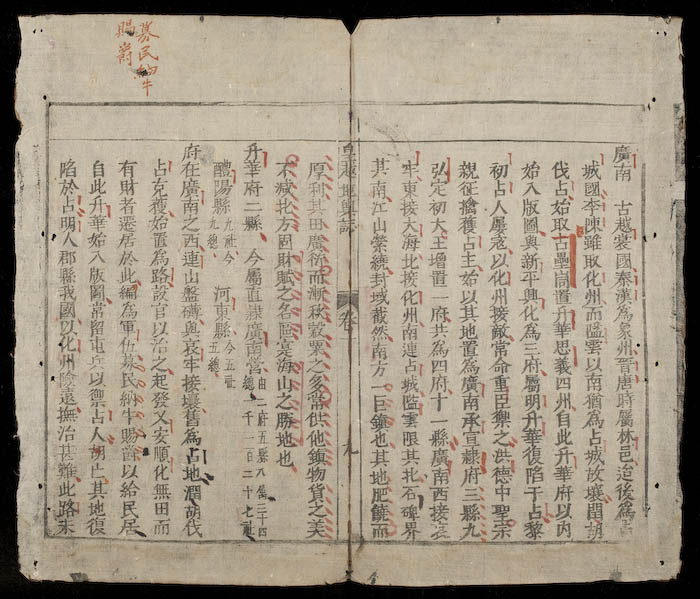 募民納牛
賜爵
廣南 古越裳國秦漢為象州晉唐時屬林邑迨後為占
城國李陳雖取化州而隘雲以南猶為占城故壤閏胡
伐占始取占壘峝置升華思義四州自此升華府以內
始入版圖與新平興化為三府屬明升華復陷于占黎
初占人屡寇以化州接敵常命重臣禦之洪德中聖宗
親征擒獲占主始以其地置為廣南承宣隸府三縣九
弘定初大王增置一府共為四府十一縣廣南西接哀
牢東接大海北接化州南連占城隘雲限其北石碑界
其南江山縈繞封域截然南方一巨鎮也其地肥饒而
皇越地輿誌 卷 九
厚利其田廣衍而漸秋穀粟之多常供他鎮物貨之美
不減北方固財賦之名區寔海山之勝地也
升華府二縣 今屬直隸廣南營 由二府五縣八總三十四
總 千一百二十七社
醴陽縣 九社今九總 河東縣 今五社五總
府在廣南之西連山盤礡與哀牢接壤舊為占地潤胡伐
占克獲始置為路設官以治之起發乂安順化無田而
有財者遷居於此編為軍伍募民納牛賜爵以給民居
自此升華始入版圖常留屯兵以禦占人胡亡其地復
陷於占明人郡縣我國以化州險遠撫治甚難此路未